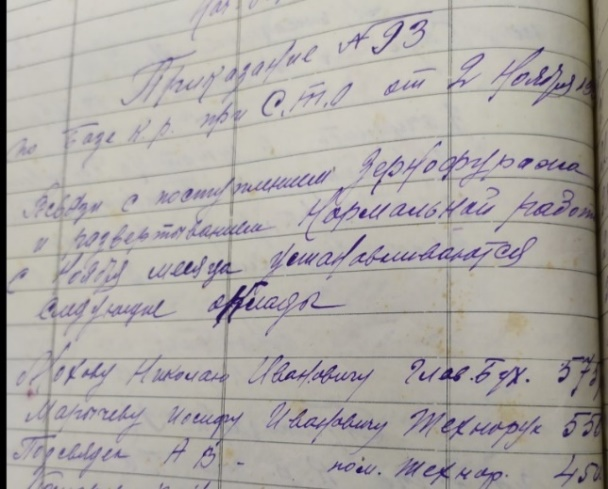 Приказание №93
по Базе К.р. при С.Т.О от 2 Ноября
Всвязи с поступлением Зернофуража
и развертыванием Нормальной работ
с Ноября месяца устанавливаются
следующие оклады
Николаю Ивановичу Глав. Бух. 575
Марычеву Иосифу Ивановичу Технорук 550
А В - пом. Технор. 450